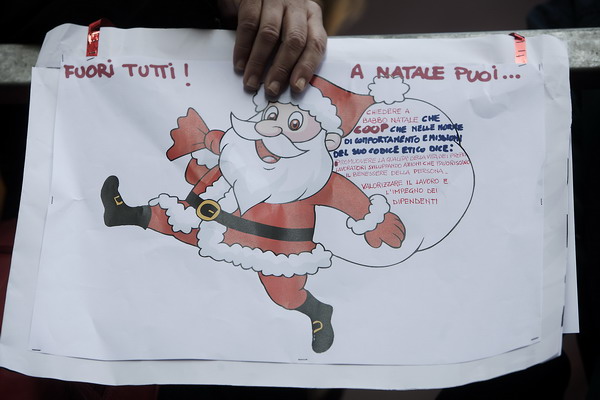 FUORI TUTTI!
A NATALE PUOI...
CHIEDERE A
BABBO NATALE CHE
COOP CHE NELLE NORME
DI COMPORTAMENTO E MISSIONI
DEL SUO CODICE ETICO DICE:
PROMUOVERE LA QUALITÀ DELLA VITA DEI PROPRI
LAVORATORI SVILUPPANDO AZIONI CHE FAVORISCONO
IL BENESSERE DELLA PERSONA.
VALORIZZARE IL LAVORO E
L'IMPEGNO DEI
DIPENDENTI